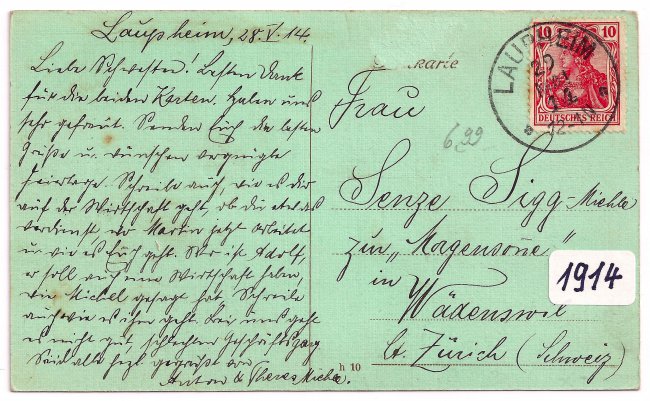 Laupheim, 28.V.14.
Liebe Schwester! Besten Dank
für die beiden Karten. Haben uns
sehr gefreut. Senden Euch die besten
Grüße u. wünschen vergnügte
Feiertage. Schreibe auch, wie es dir
auf der Wirtschaft geht, ob du etwas
verdienst, wo Martin jetzt arbeitet
u. wie es Euch geht. Wo ist Adolf,
er soll auch eine Wirtschaft haben,
wie Michel gesagt hat. Schreibe
auch wie es ihm geht. Bei uns geht
es nicht gut, schlechter Geschäftsgang
Seid alle herzl. gegrüßt von
Anton & Theres Miehle.
karte
Frau
Senze Sigg-Miehle
zur "Magensonne"
in
Wädenswil
Ct. Zürich (Schweiz)
6,99
h 10
10 10
DEUTSCHES REICH
LAUPHEIM
14
1914